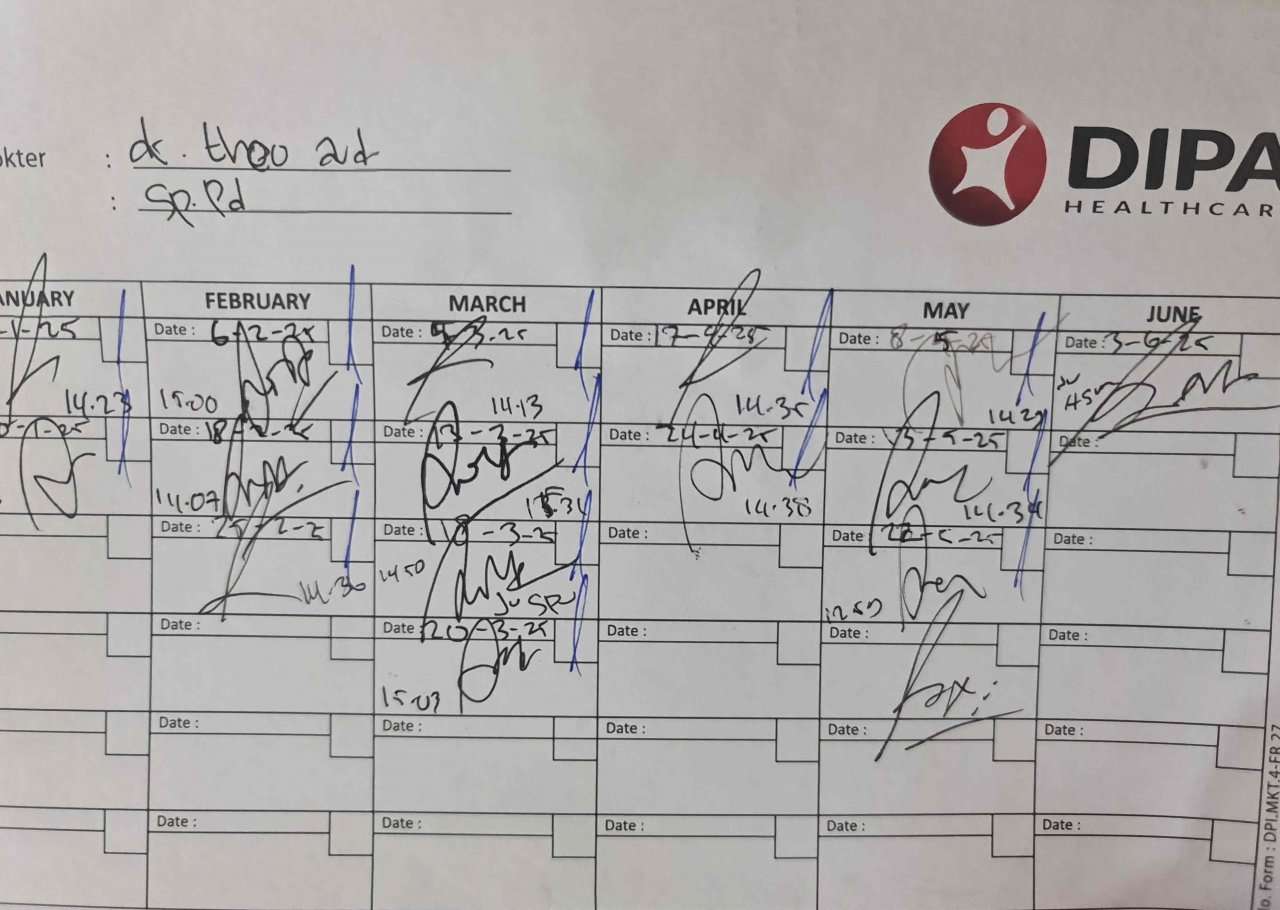 okter : dr. theo adt
: Sp.Pd
DIPA
HEALTHCAR
ANUARY FEBRUARY MARCH APRIL MAY JUNE
-1-25 Date : 6-2-25 Date : Date : 17-4-25 Date : 8-5-25 Date : 3-6-25
14.23 15.00 14.13 14.35 14.29
-1-25 Date : 18-2-25 Date : 13-3-25 Date : 24-4-25 Date : 15-5-25 Date :
14.07 14.38 14.34
Date : 25-2-2 Date : -3-25 Date : Date : 22-5-25 Date :
14.30 1450 1250
Date : Date : 20-3-25 Date : Date : Date :
15.03
Date : Date : Date : Date : Date :
Date : Date : Date : Date : Date :
o. Form : DPI.MKT.4-FR.27